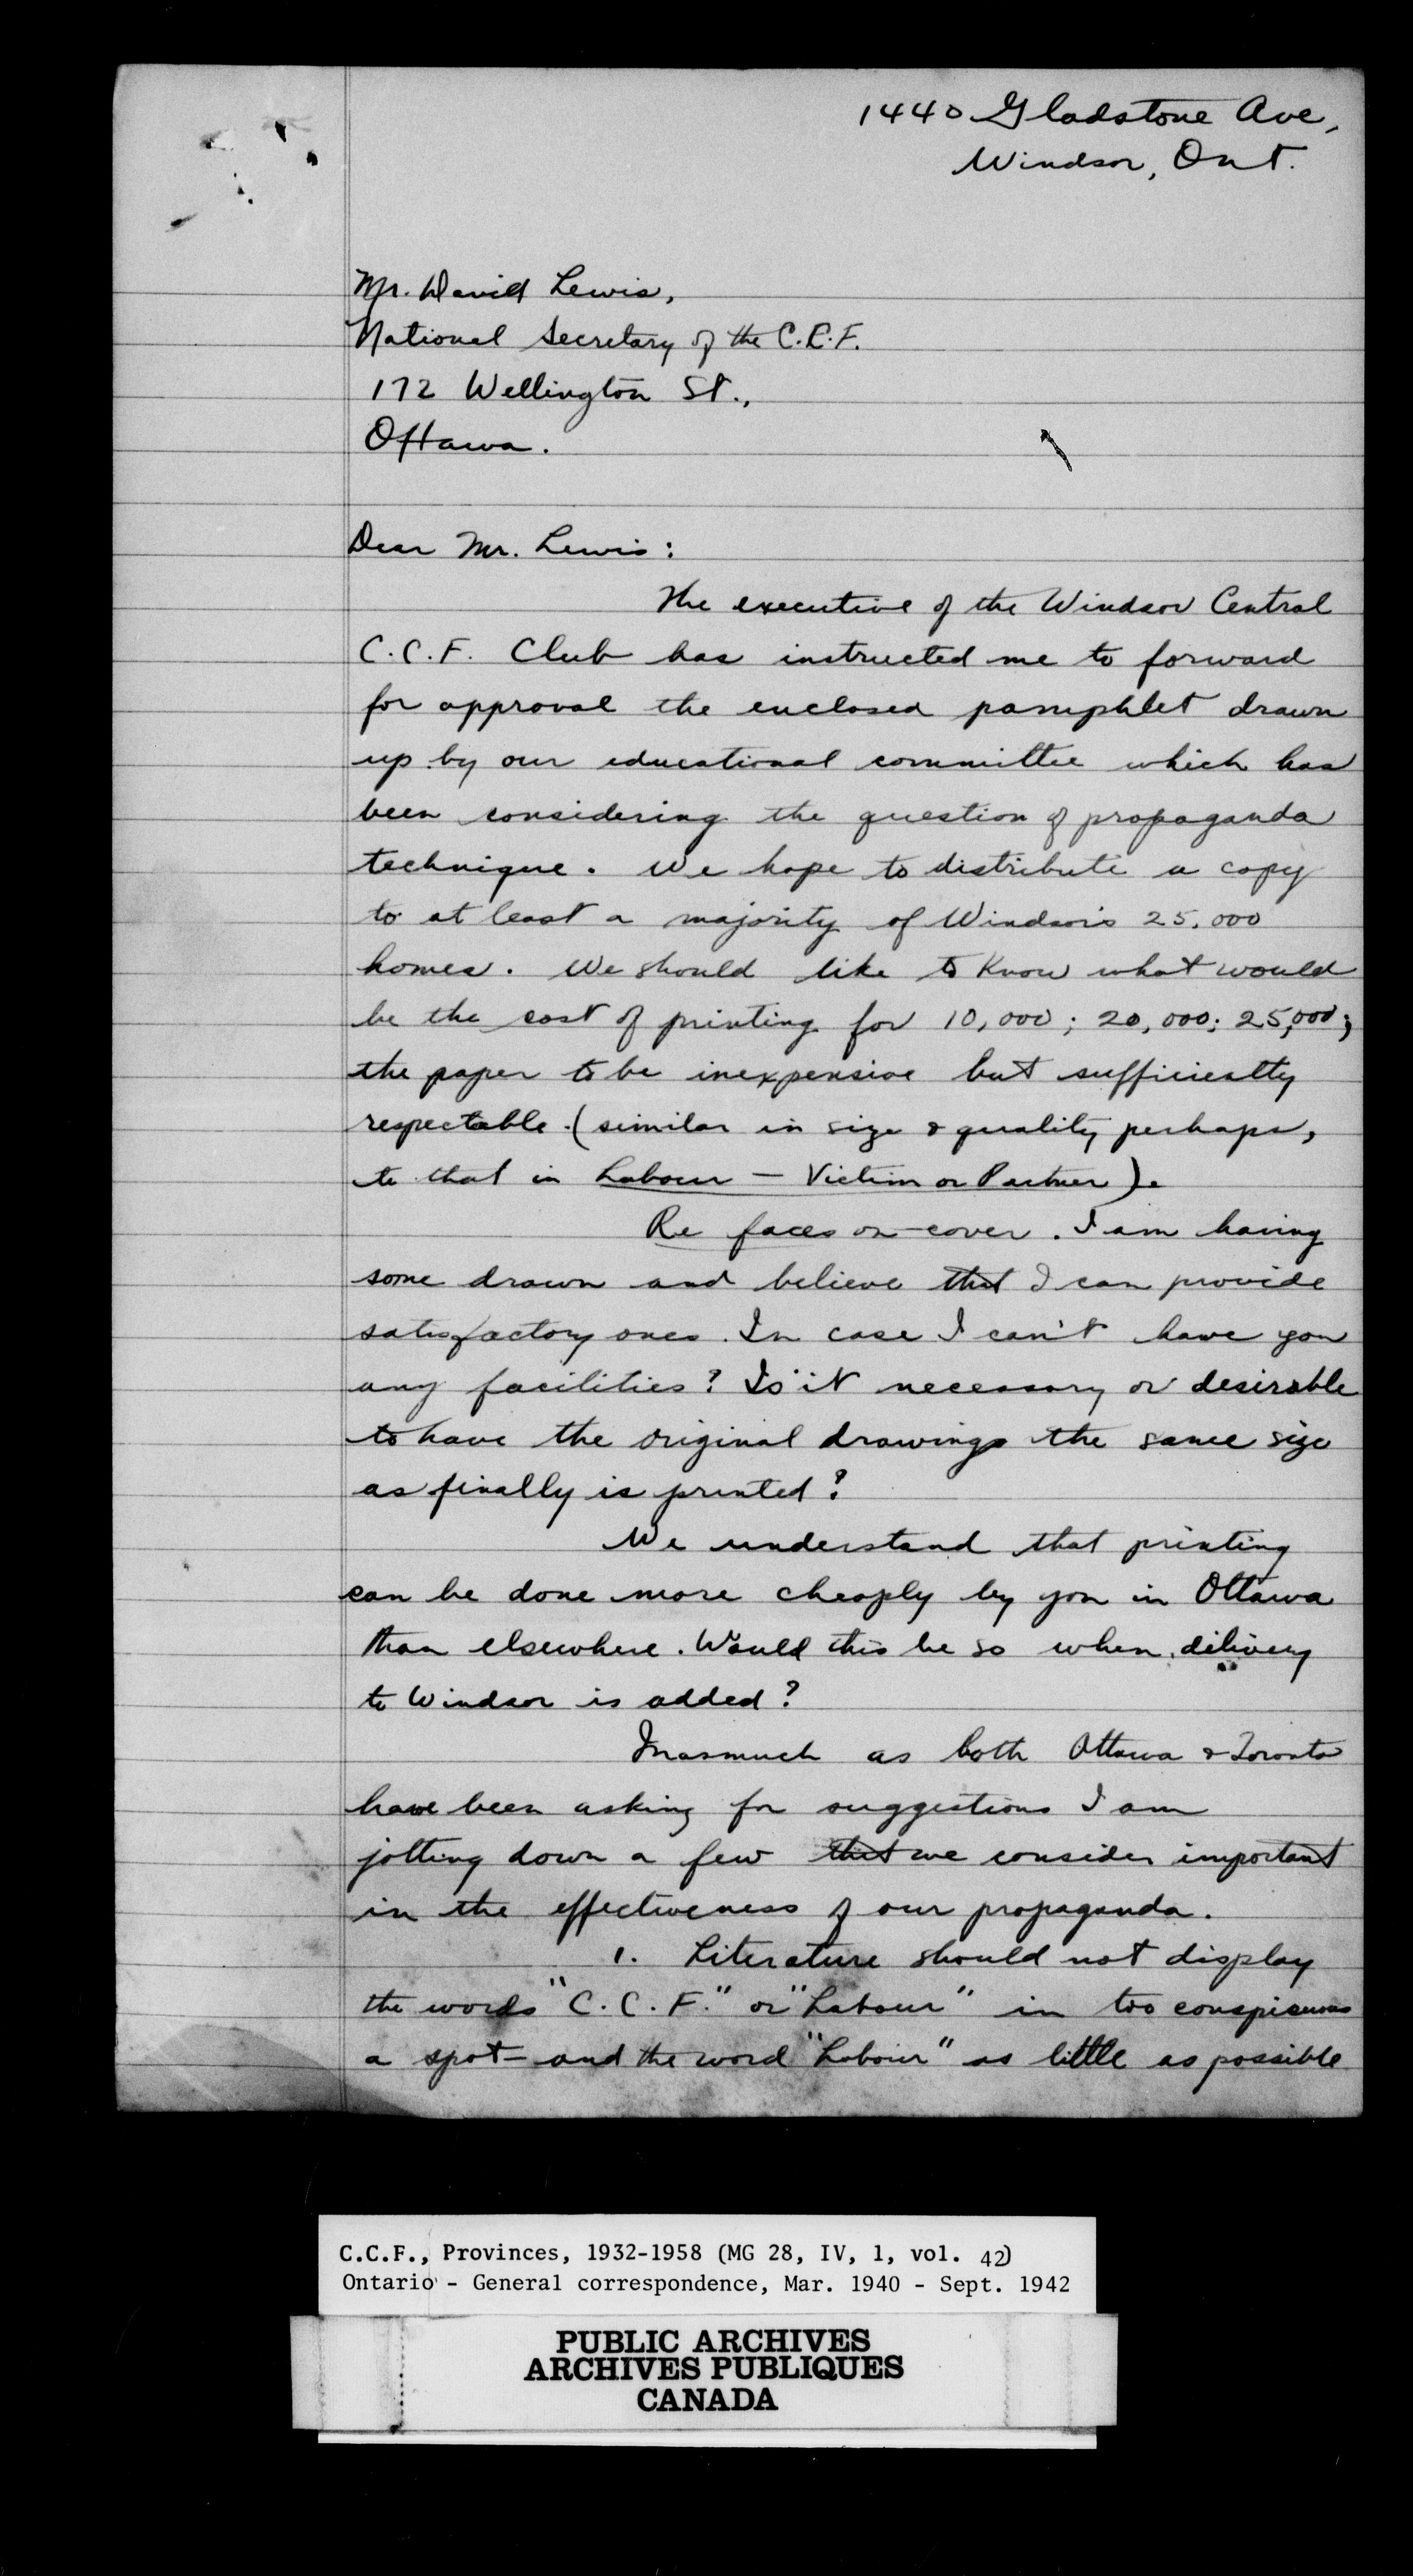 1440 Gladstone Ave,
Windsor, Ont.
Mr. David Lewis,
National Secretary of the C.C.F.
172 Wellington St.,
Ottawa.
Dear Mr. Lewis:
The executive of the Windsor Central
C.C.F. Club has instructed me to forward
for approval the enclosed pamphlet drawn
up by our educational committee which has
been considering the question of propaganda
technique. We hope to distribute a copy
to at least a majority of Windsor's 25,000
homes. We should like to know what would
be the cost of printing for 10,000; 20,000; 25,000;
the paper to be inexpensive but sufficiently
respectable (similar in size & quality perhaps,
to that in Labour — Victim or Partner).
Re faces on cover. I am having
some drawn and believe that I can provide
satisfactory ones. In case I can't have you
any facilities? Is it necessary or desirable
to have the original drawings the same size
as finally is printed?
We understand that printing
can be done more cheaply by you in Ottawa
than elsewhere. Would this be so when delivery
to Windsor is added?
Inasmuch as both Ottawa & Toronto
have been asking for suggestions I am
jotting down a few that we consider important
in the effectiveness of our propaganda.
1. Literature should not display
the words "C.C.F." or "Labour" in too conspicuous
a spot — and the word "Labour" as little as possible
C.C.F., Provinces, 1932-1958 (MG 28, IV, 1, vol. 42)
Ontario - General correspondence, Mar. 1940 - Sept. 1942
PUBLIC ARCHIVES
ARCHIVES PUBLIQUES
CANADA